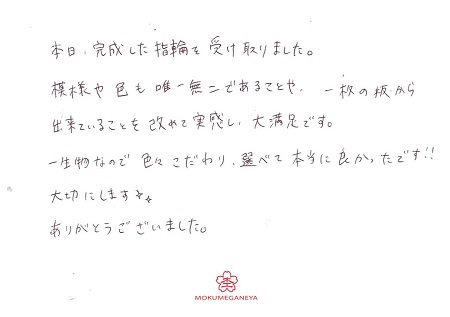 本日、完成した指輪を受け取りました。
模様や色も唯一無二であることや、一枚の板から
出来ていることを改めて実感し、大満足です。
一生物なので色々こだわり、選べて本当に良かったです!!
大切にします
ありがとうございました。
MOKUMEGANEYA